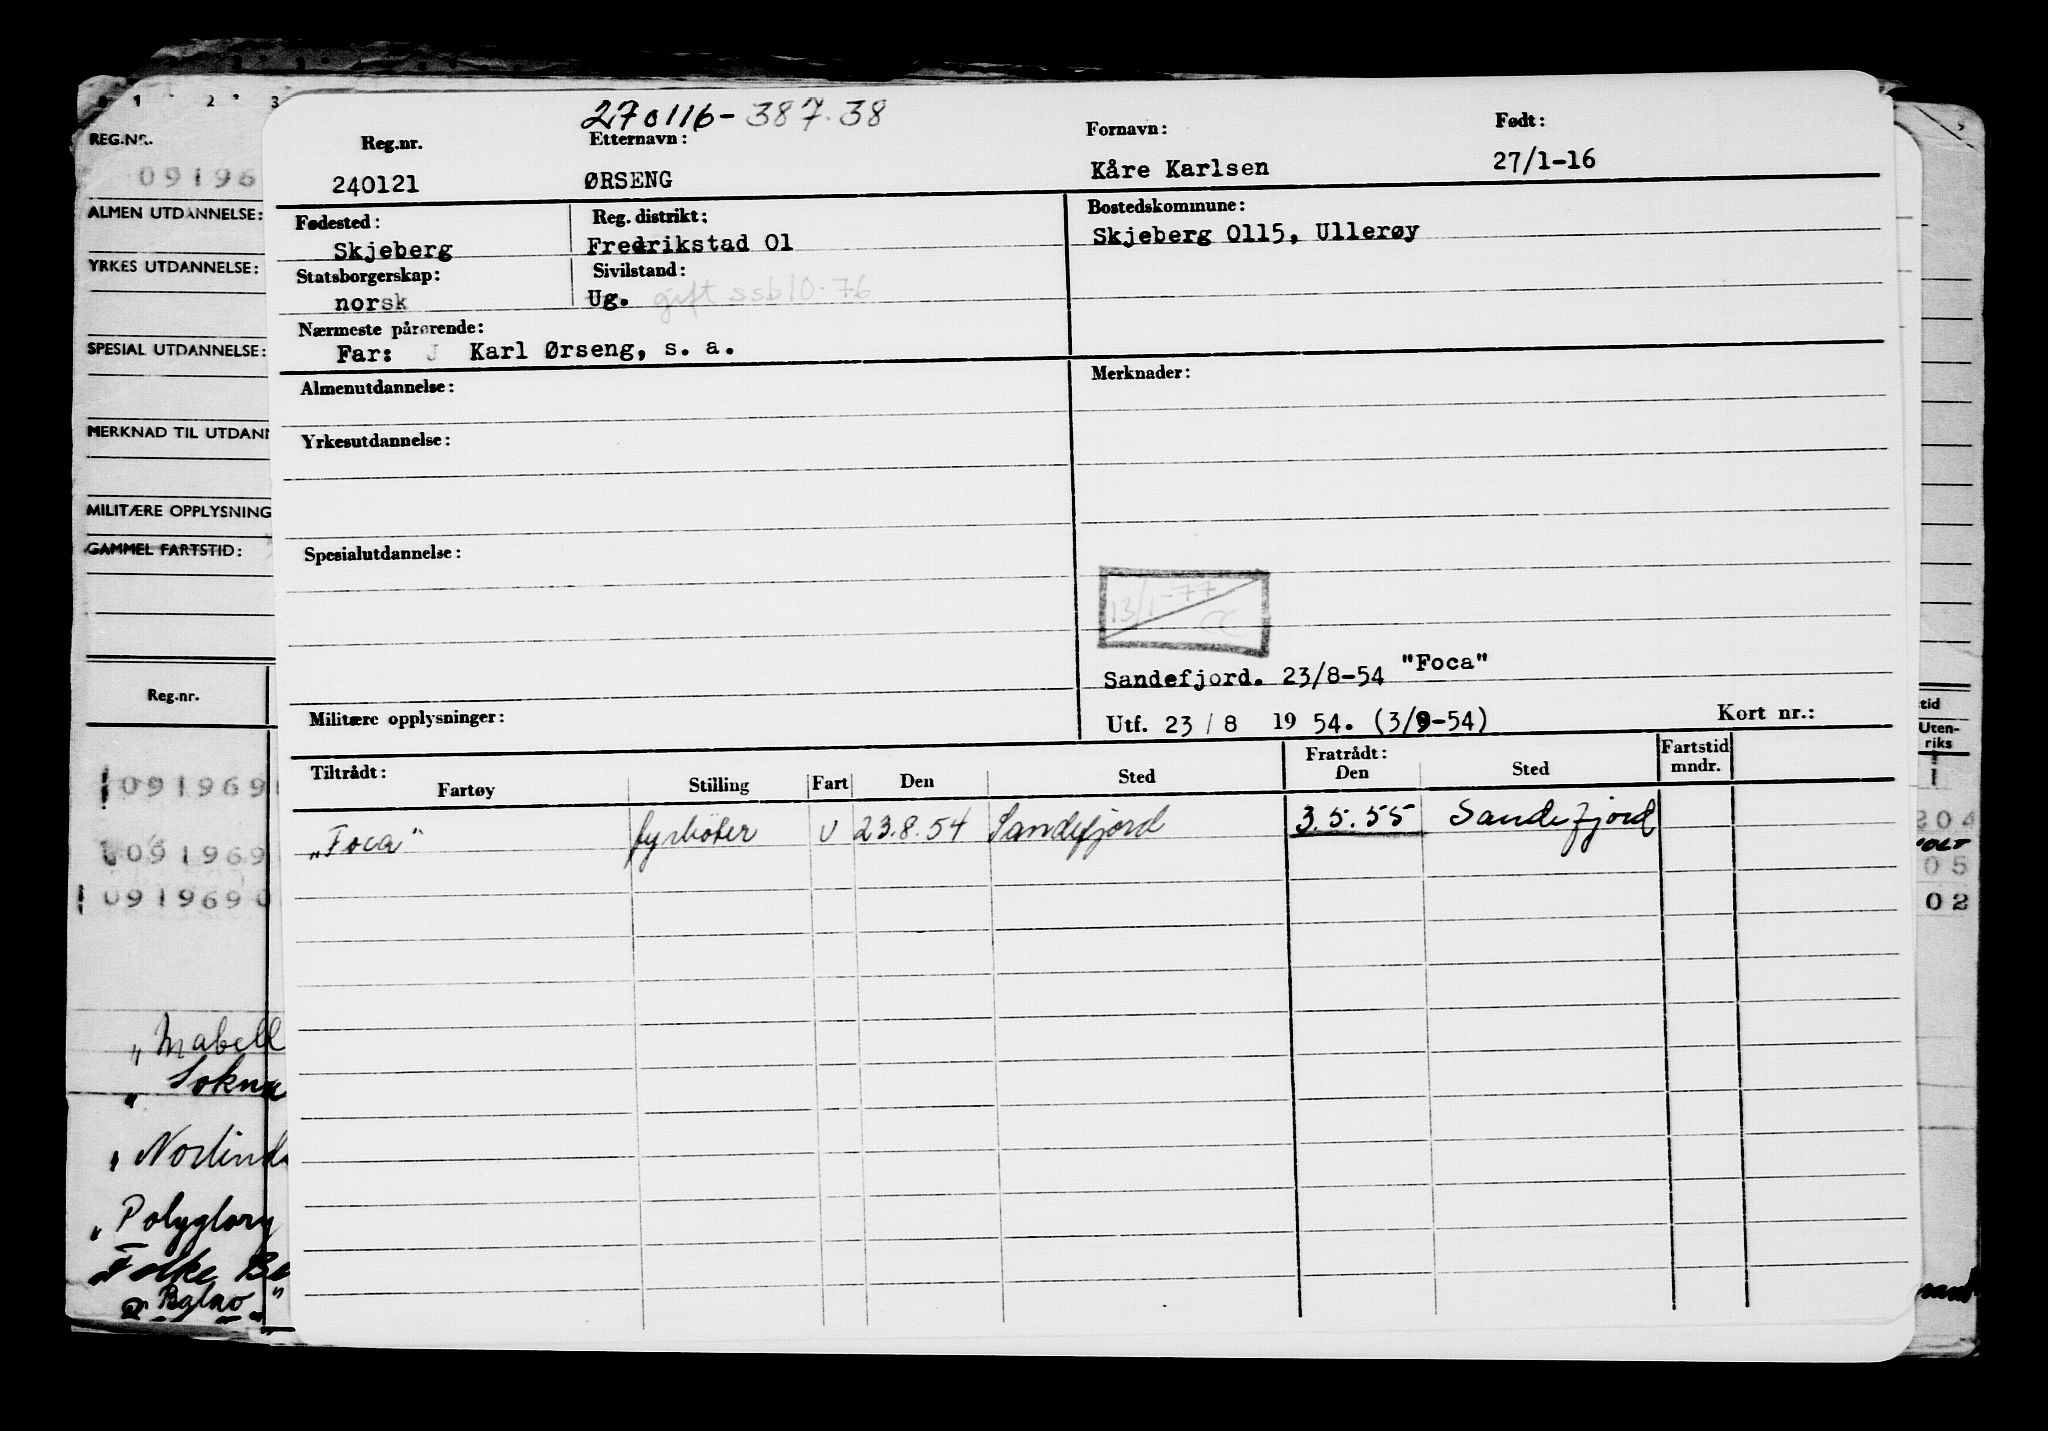 0 1 2 3
REG.NR.
09196
ALMEN UTDANNELSE:
YRKES UTDANNELSE:
SPESIAL UTDANNELSE:
MERKNAD TIL UTDANN
MILITÆRE OPPLYSNING
GAMMEL FARTSTID:
Reg.nr.
091969
091969
091969 0
„Mabell
„Sokna
„Polyglory
Folke Be
270116-387.38
Reg.nr. Etternavn: Fornavn: Født:
240121 ØRSENG Kåre Karlsen 27/1-16
Fødested: Reg. distrikt: Bostedskommune:
Skjeberg Fredrikstad 01 Skjeberg 0115, Ullerøy
Statsborgerskap: Sivilstand:
norsk Ug. gift ssb 10.76
Nærmeste pårørende:
Far: J Karl Ørseng, s. a.
Almenutdannelse: Merknader:
Yrkesutdannelse:
Spesialutdannelse:
13/1-77
Sandefjord. 23/8-54 "Foca"
Militære opplysninger: Utf. 23 / 8 19 54. (3/9-54) Kort nr.:
Tiltrådt: Fratrådt: Fartstid
Fartøy Stilling Fart Den Sted Den Sted mndr.
„Foca" fyrbøter U 23.8.54 Sandefjord 3.5.55 Sandefjord
tid
Uten-
riks
1
204
05
02